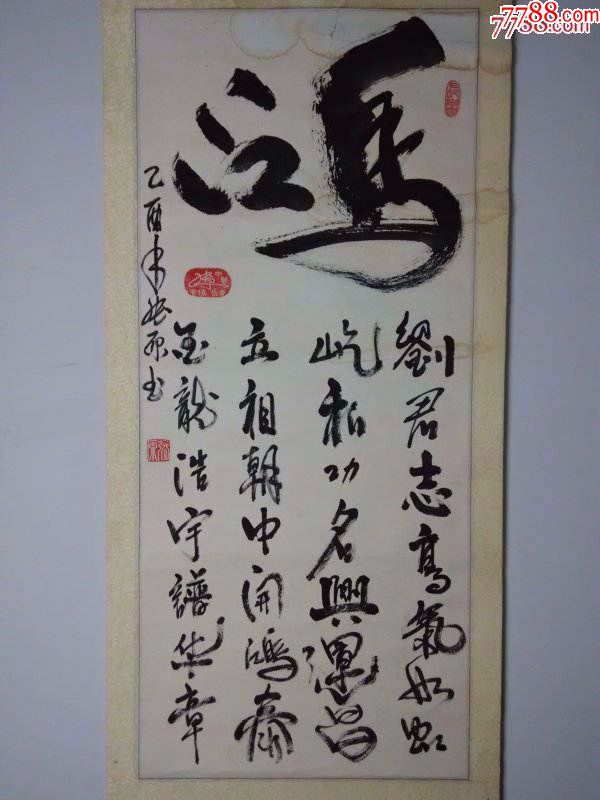 7788.com
鴻
劉君志高氣如虹
屹功名興運昌
立相朝中開鴻泰
金龍浩宇譜華章
乙酉年原书